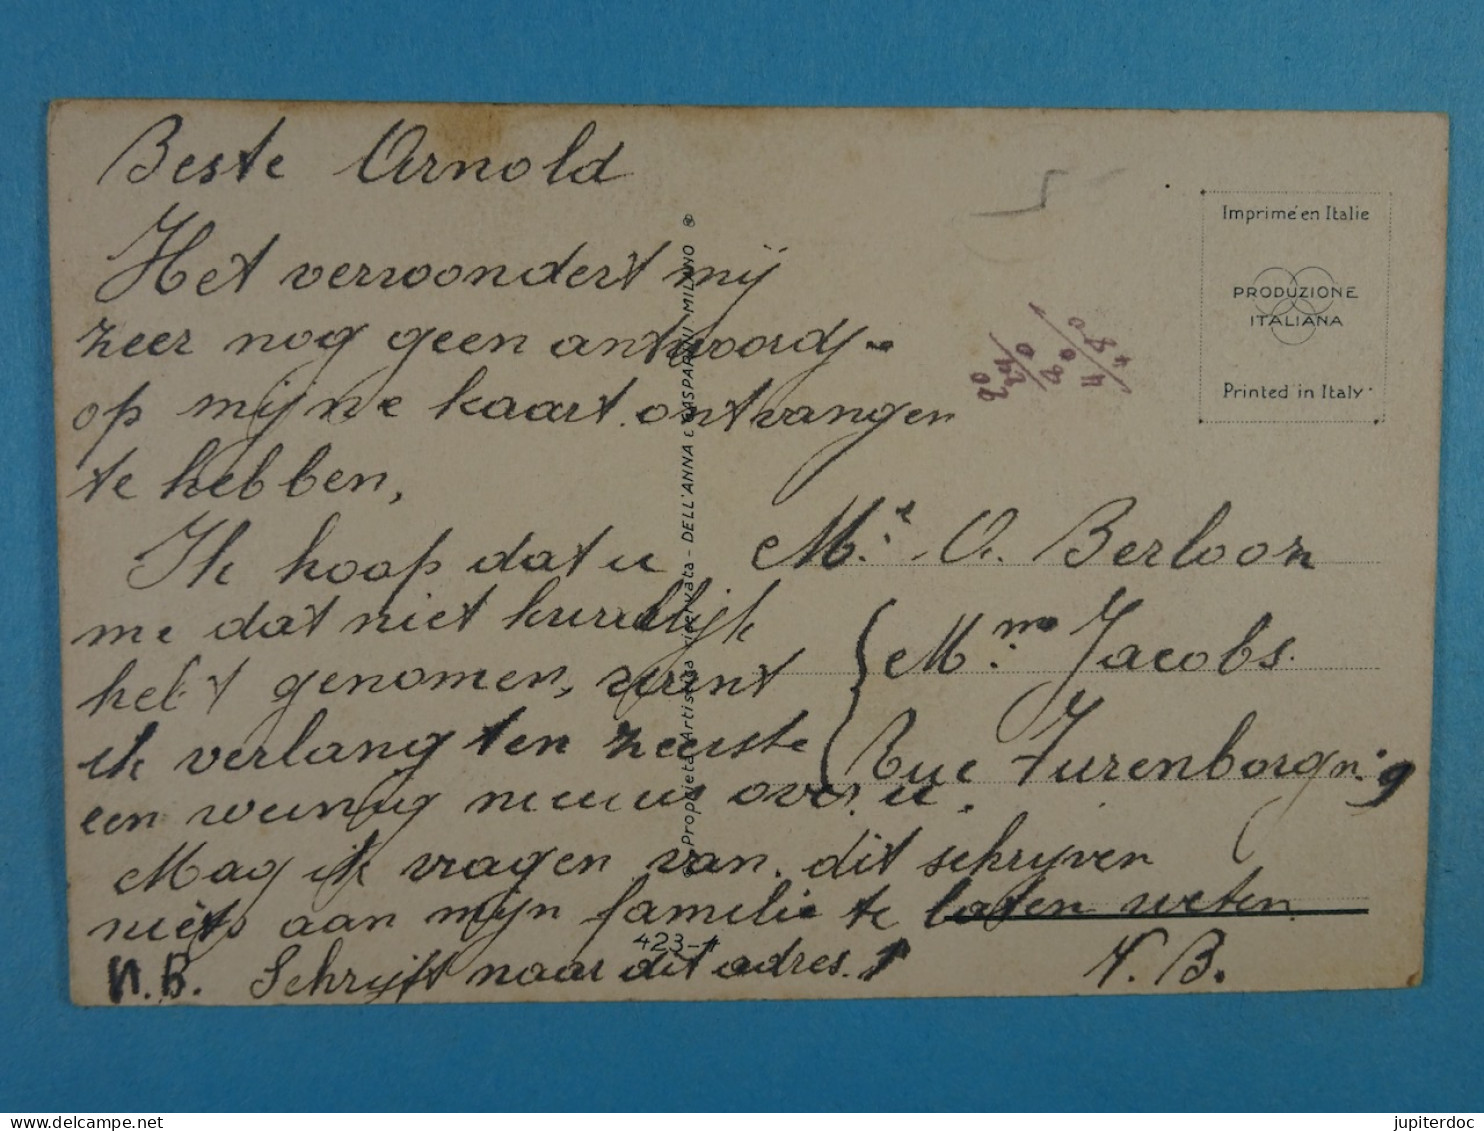 Beste Arnold
Het verwondert mij
zeer nog geen antwoordj-
op mijne kaart ontvangen
te hebben,
Ik hoop dat u
me dat niet kwalijk
hebt genomen, want
ik verlang ten zeerste
een weinig nieuws over u.
Mag ik vragen van dit schrijven
niets aan mijn familie te laten weten.
N.B. Schrijft naar dit adres.
N. B.
Mr. A. Berloon
Mme Jacobs.
Rue Zurenborgn: 9
Imprimé en Italie
PRODUZIONE
ITALIANA
Printed in Italy
Proprietà Artistica riservata - DELL'ANNA E GASPARINI MILANO
423-4
delcampe.net
jupiterdoc